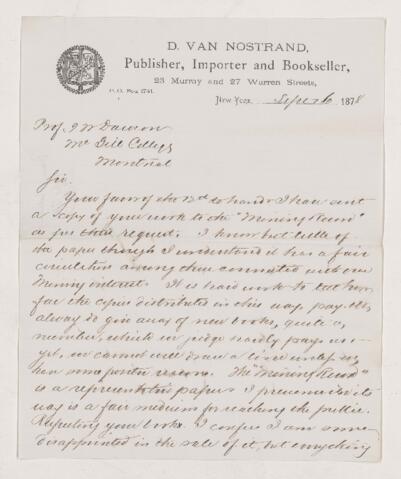 D. VAN NOSTRAND,
Publisher, Importer and Bookseller,
23 Murray and 27 Warren Streets,
P.O. Box 1741.
New York, Sept 6 1878
Prof J W Dawson
McGill College
Montreal
Sir.
Your favor of the 2d to hand. I have sent
a copy of your work to the "Mining Record"
as per their request. I know but little of
the paper though I understand it has a fair
circulation among those connected with our
Mining interest. It is hard work to tell how
far the copies distributed in this way pay. We
always do give away of new books, quite a
number, which we judge hardly pay us
yet, we cannot well draw a line unless we
have some positive reason. The "Mining Record"
is a representative paper & I presume in its
way is a fair medium for reaching the public.
Respecting your books. I confess I am some
disappointed in the sale of it, but everything